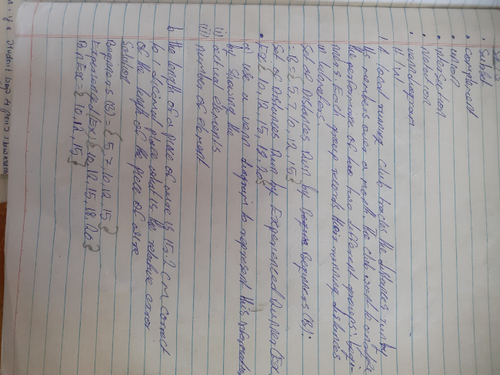 • Subset
• Complement
• Union
• Intersection
• Venn diagram
1. A local running club tracks the distances run by
its members over a month. The club want to analyze
the performance of two different groups: Begin-
ners. Each group record their running distances
in kilometres.
Set of Distances Run by Beginners (B):
B = {5, 7, 10, 12, 15}
Set of Distances Run by Experienced Runner (Ex)
Ex = {10, 12, 15, 18, 20}
a. Use a venn diagram to represent this information
by showing the
i) actual elements
(ii) number of element
b. The length of a piece of wire is 15.2 cm correct
to 1 decimal place what is the relative error
of the length of the piece of wire
Solution
Beginners (B) = {5, 7, 10, 12, 15}
Experience (Ex) = {10, 12, 15, 18, 20}
B ∩ Ex = {10, 12, 15}